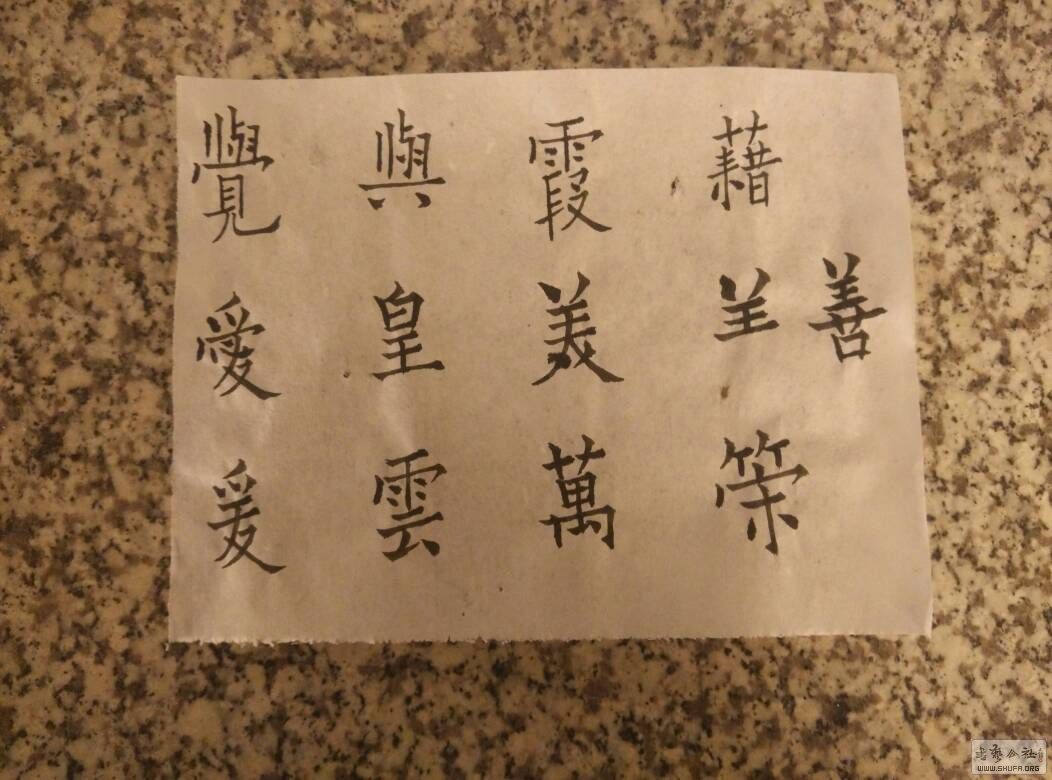 覺 與 霞 藉
愛 皇 美 善
爰 雲 萬 筞
书艺公社
WWW.SHUFA.ORG